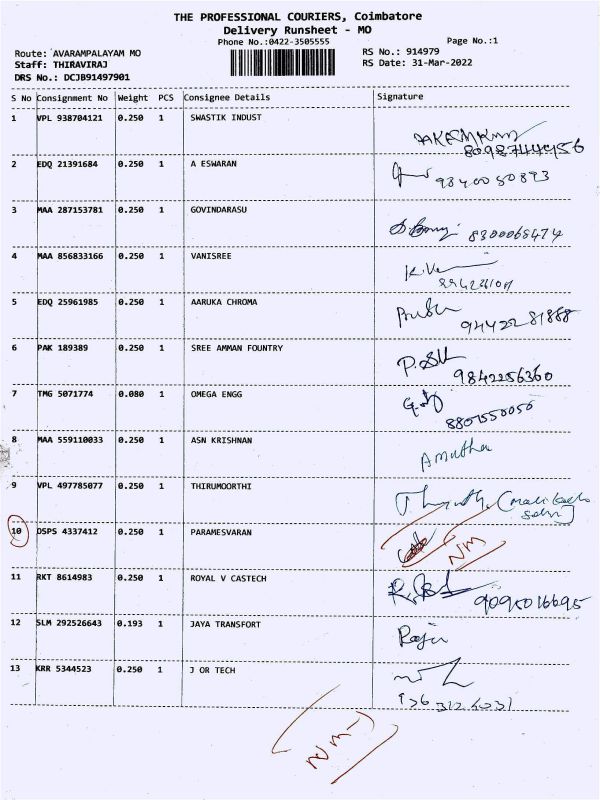 THE PROFESSIONAL COURIERS, Coimbatore
Delivery Runsheet - MO
Phone No.:0422-3505555
Page No.:1
Route: AVARAMPALAYAM MO
RS No.: 914979
Staff: THIRAVIRAJ
RS Date: 31-Mar-2022
DRS No.: DCJB91497901
S No Consignment No Weight PCS Consignee Details Signature
1 VPL 938704121 0.250 1 SWASTIK INDUST
2 EDQ 21391684 0.250 1 A ESWARAN
9840050893
3 MAA 287153781 0.250 1 GOVINDARASU
8300068474
4 MAA 856833166 0.250 1 VANISREE
5 EDQ 25961985 0.250 1 AARUKA CHROMA
6 PAK 189389 0.250 1 SREE AMMAN FOUNTRY
9842256360
7 TMG 5071774 0.080 1 OMEGA ENGG
8 MAA 559110033 0.250 1 ASN KRISHNAN Amutha
9 VPL 497785077 0.250 1 THIRUMOORTHI
10 DSPS 4337412 0.250 1 PARAMESVARAN
NM
11 RKT 8614983 0.250 1 ROYAL V CASTECH
9095016695
12 SLM 292526643 0.193 1 JAYA TRANSFORT Raju
13 KRR 5344523 0.250 1 J OR TECH
NM-1